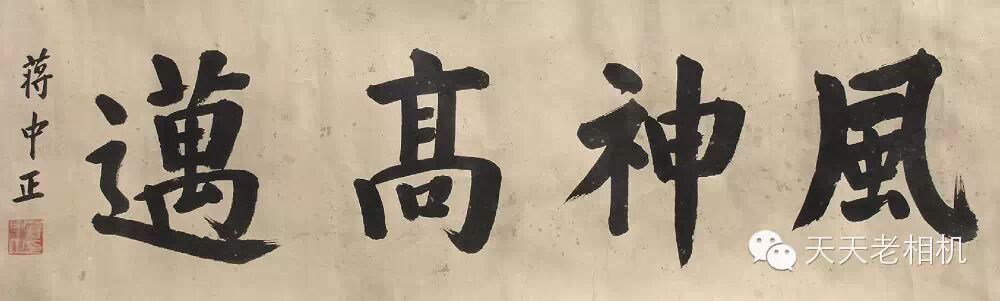 風神高邁
蔣中正
天天老相机